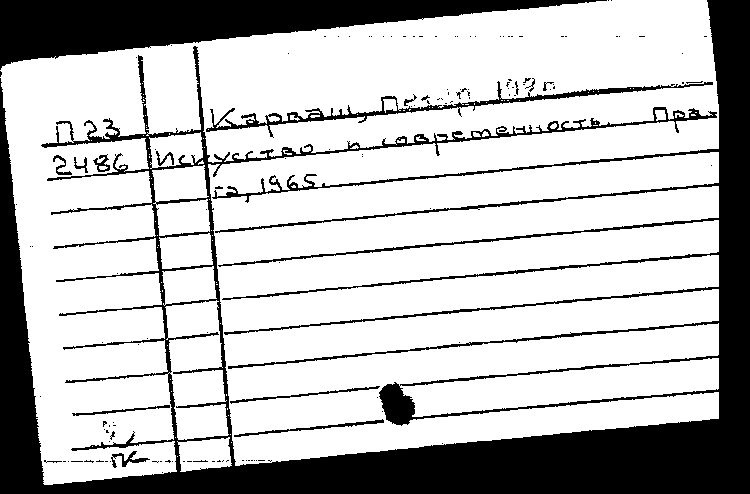 П 23 Карваш, Петер, 192
2486 Искусство и современность. Пра-
га, 1965.
ПК